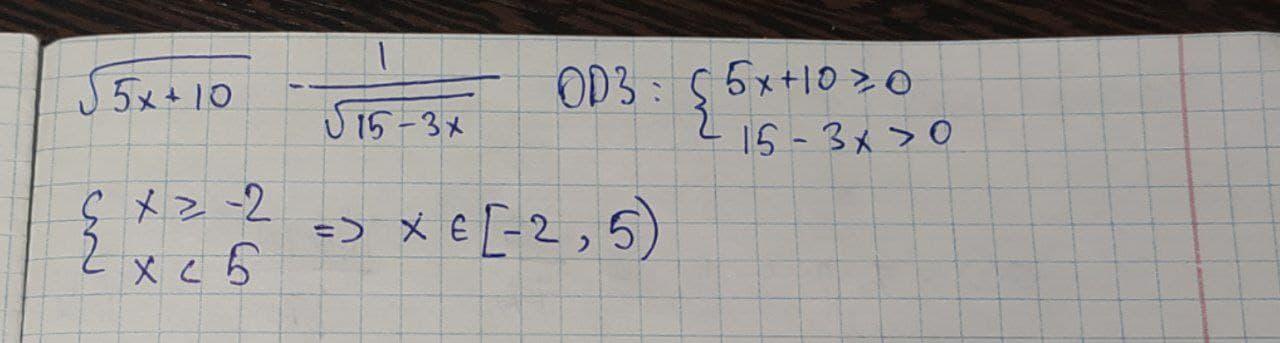 √(5x+10) - 1/√(15-3x) ОДЗ: { 5x+10 ≥ 0
15 - 3x > 0
{ x ≥ -2
x < 5 => x ∈ [-2, 5)